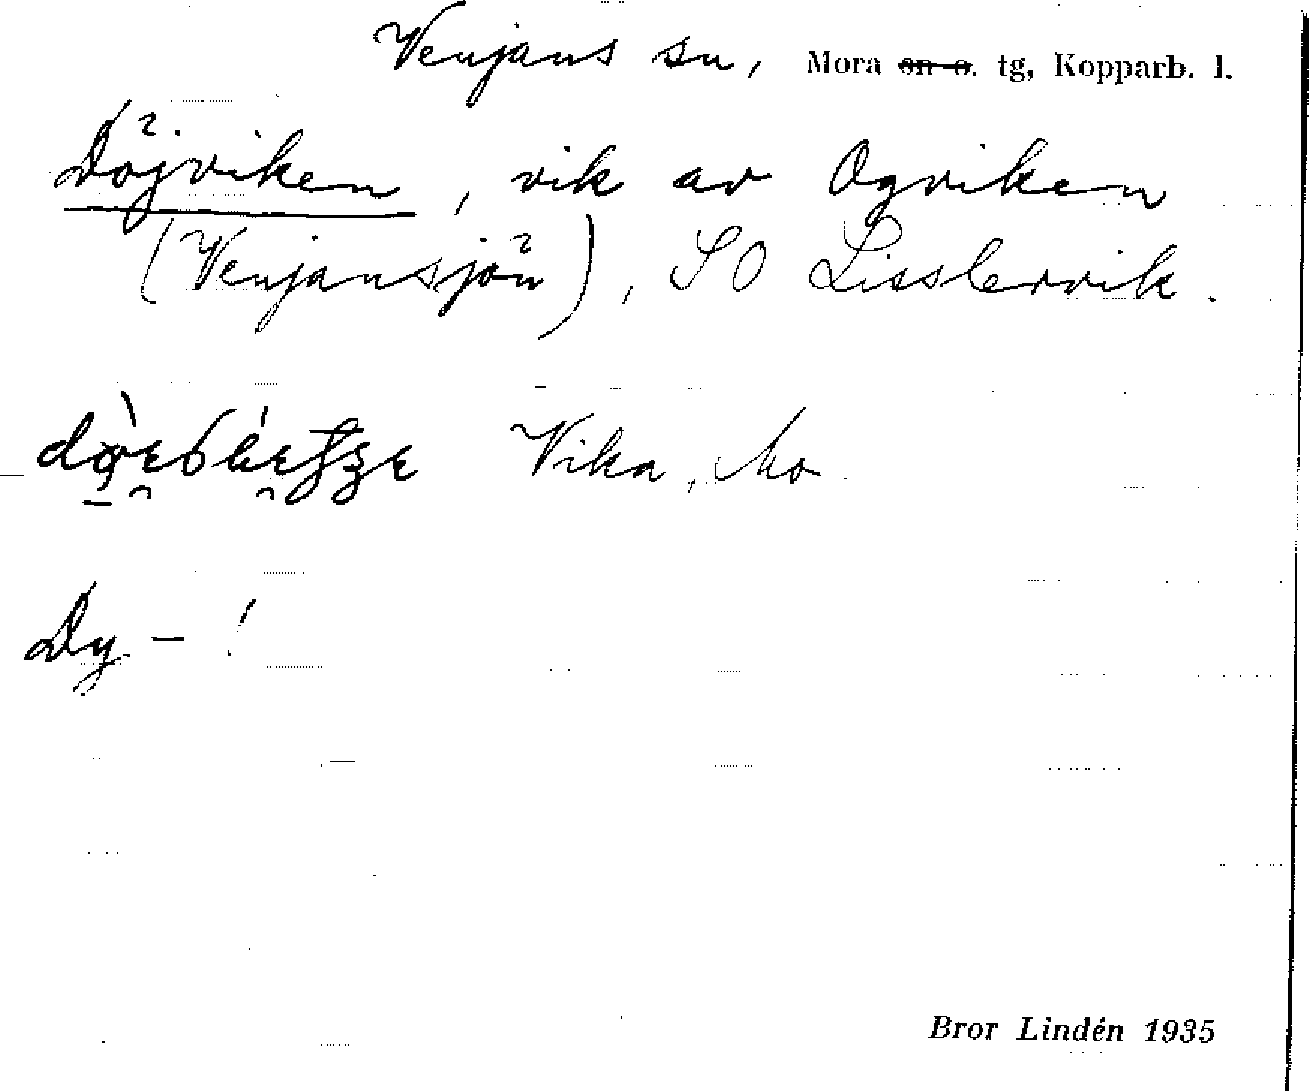 Venjans sn, Mora sn o. tg, Kopparb. l.
Dögviken, vik av Ogviken
(Venjansjön), SO Lisslervik.
Vika, Mo
Dy- !
Bror Lindén 1935